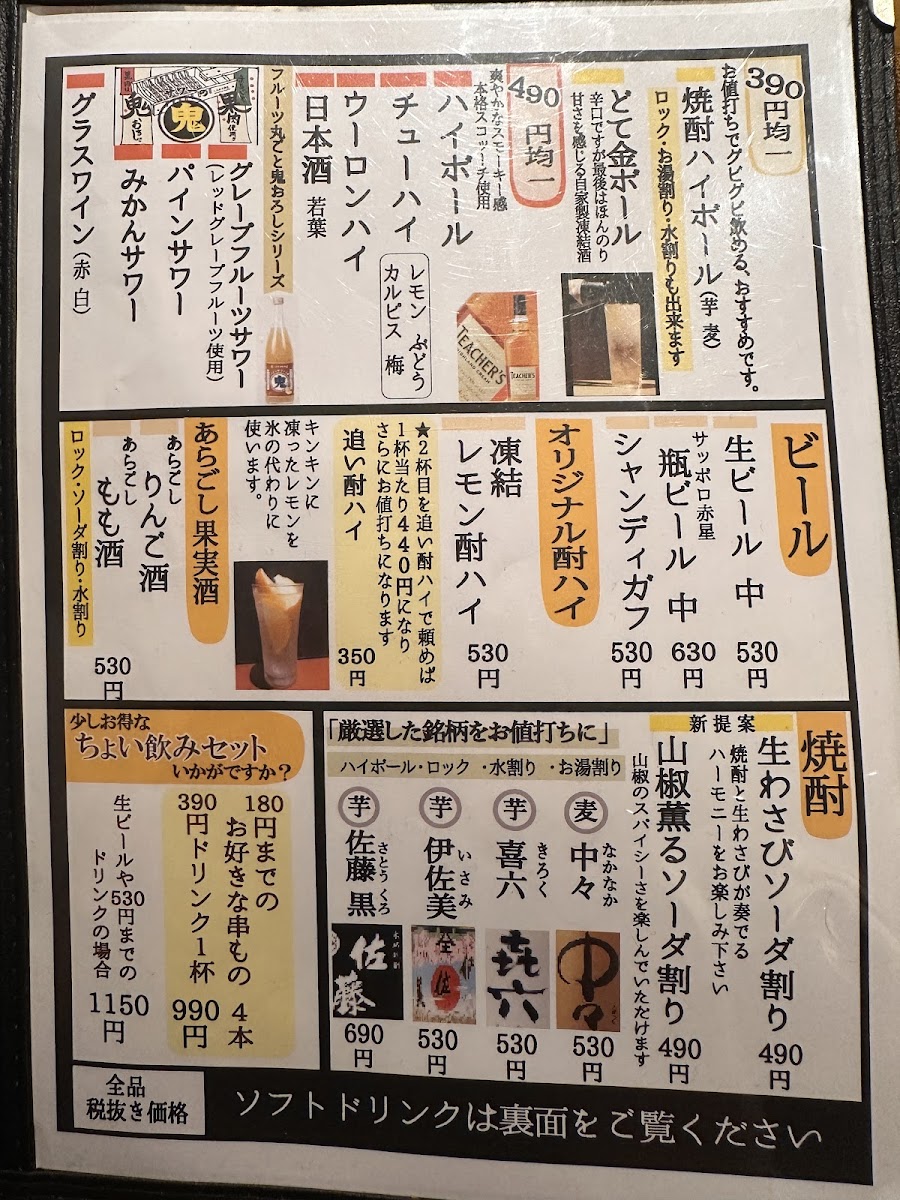 390円均一
お値打ちでグビグビ飲める、おすすめです。
焼酎ハイボール(芋 麦)
ロック・お湯割り・水割りも出来ます
どて金ボール
辛口ですが最後はほんのり
甘さを感じる自家製凍結酒
490円均一
爽やかなスモーキー感
本格スコッチ使用
ハイボール
TEACHER'S
TEACHER'S
チューハイ
レモン ぶどう
カルピス 梅
ウーロンハイ
日本酒 若葉
フルーツ丸ごと鬼おろしシリーズ
鬼
鬼
鬼
グレープフルーツサワー
(レッドグレープフルーツ使用)
パインサワー
みかんサワー
グラスワイン(赤 白)
ビール
生ビール 中 530円
サッポロ赤星
瓶ビール 中 630円
シャンディガフ 530円
オリジナル酎ハイ
凍結
レモン酎ハイ 530円
★2杯目を追い酎ハイで頼めば
1杯当たり440円になり
さらにお値打ちになります
追い酎ハイ 350円
キンキンに
凍ったレモンを
氷の代わりに
使います。
あらごし果実酒
あらごし りんご酒
あらごし もも酒
530円
ロック・ソーダ割り・水割り
焼酎
新提案
生わさびソーダ割り 490円
焼酎と生わさびが奏でる
ハーモニーをお楽しみ下さい
山椒薫るソーダ割り 490円
山椒のスパイシーさを楽しんでいたたけます
「厳選した銘柄をお値打ちに」
ハイボール・ロック ・水割り ・お湯割り
麦 中々 なかなか 中々 530円
芋 喜六 きろく 㐂六 530円
芋 伊佐美 いさみ 530円
芋 佐藤 黒 さとうくろ 佐藤 690円
少しお得な
ちょい飲みセット
いかがですか?
180円までの
お好きな串もの 4本
390円ドリンク1杯 990円
生ビールや530円までの
ドリンクの場合 1150円
全品
税抜き価格
ソフトドリンクは裏面をご覧ください